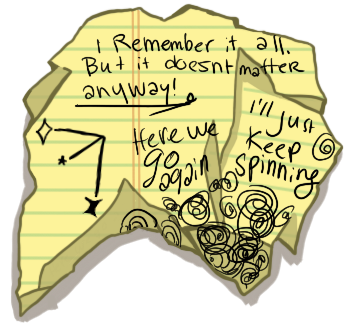 I Remember it all.
But it doesnt matter
anyway!
Here we
go
again
I'll Just
Keep
spinning